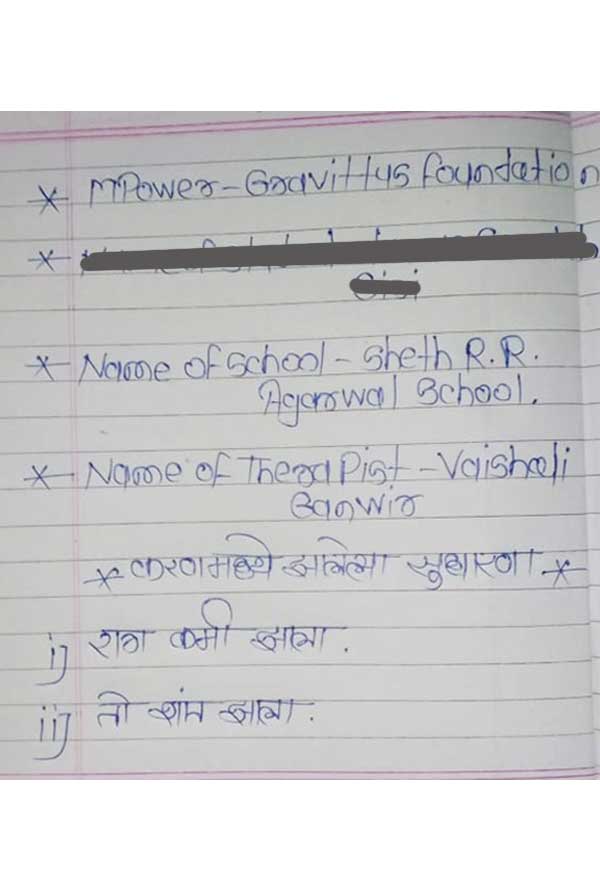 * MPower-Gravittus foundation
*
* Name of School - Sheth R.R.
Agarwal School.
* Name of Therapist - Vaishali
Ganwir
* करणमध्ये झालेल्या सुधारणा *
i] राग कमी झाला.
ii] तो शांत झाला.